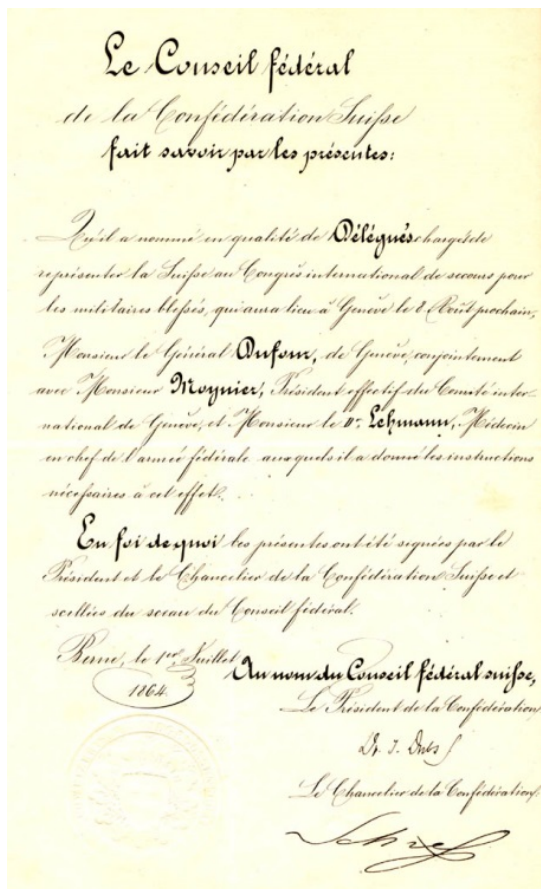 Le Conseil fédéral
de la Confédération Suisse
fait savoir par les présentes:
Qu'il a nommé en qualité de Délégués chargés de
représenter la Suisse au Congrès international de secours pour
les militaires blessés, qui aura lieu à Genève le 8 Août prochain,
Monsieur le Général Dufour, de Genève, conjointement
avec Monsieur Moynier, Président effectif du Comité inter-
national de Genève, et Monsieur le Dr. Lehmann, Médecin
en chef de l'armée fédérale auxquels il a donné les instructions
nécessaires à cet effet.
En foi de quoi les présentes ont été signées par le
Président et le Chancelier de la Confédération Suisse et
scellées du sceau du Conseil fédéral.
Berne, le 1er. Juillet
1864.
Au nom du Conseil fédéral suisse,
Le Président de la Confédération,
Dr. J. Dubs
Le Chancelier de la Confédération:
Schiess